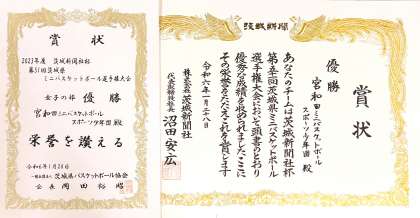 賞状
2023年度 茨城新聞社杯
第51回茨城県
ミニバスケットボール選手権大会
女子の部 優勝
宮和田ミニバスケットボール
スポーツ少年団 殿
栄誉を讃える
令和6年1月28日
一般社団法人 茨城県バスケットボール協会
会長 岡田裕昭
茨城新聞
賞状
優勝
宮和田ミニバスケットボール
スポーツ少年団 殿
あなたのチームは茨城新聞社杯
第五十一回茨城県ミニバスケットボール
選手権大会において頭書のとおり
優秀な成績を収められました ここに
その栄誉をたたえこれを賞します
令和六年一月二十八日
株式会社 茨城新聞社
代表取締役社長 沼田安広